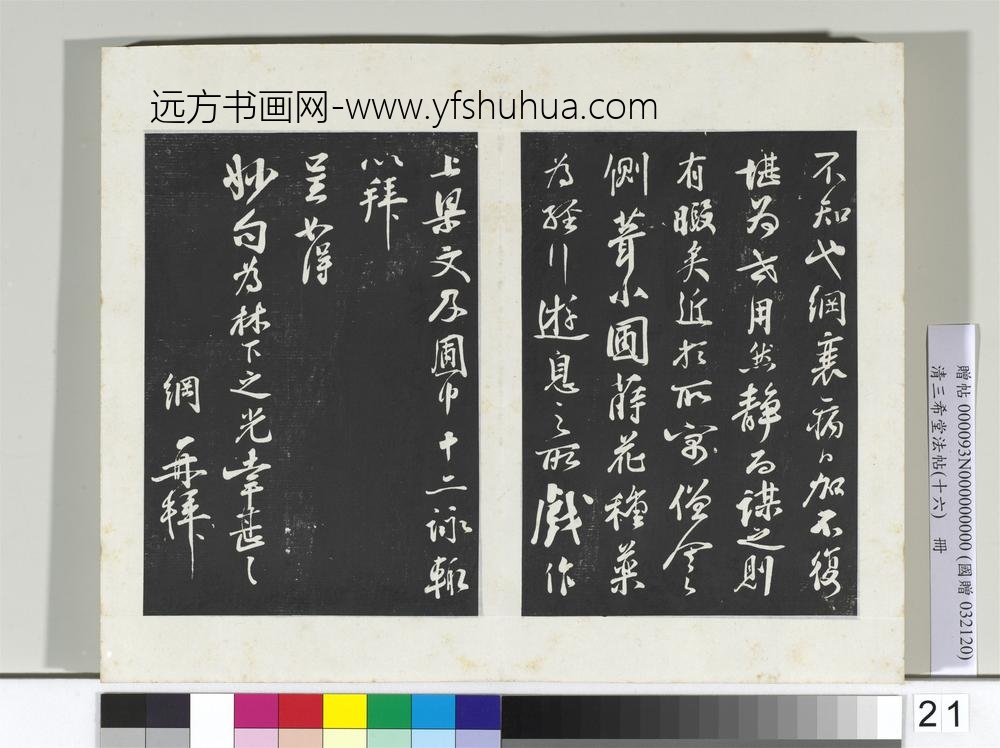 远方书画网-www.yfshuhua.com
不知也綱衰病日加不復
堪為世用然靜而謀之則
有暇矣近於所寓僧舍之
側葺小圃蒔花種藥
為經行遊息之所戲作
上梁文及圃中十二詠輒
以拜
呈如得
妙句為林下之光幸甚之
綱 再拜
贈帖 000093N000000000 (國贈 032120)
清三希堂法帖(十六) 冊
21